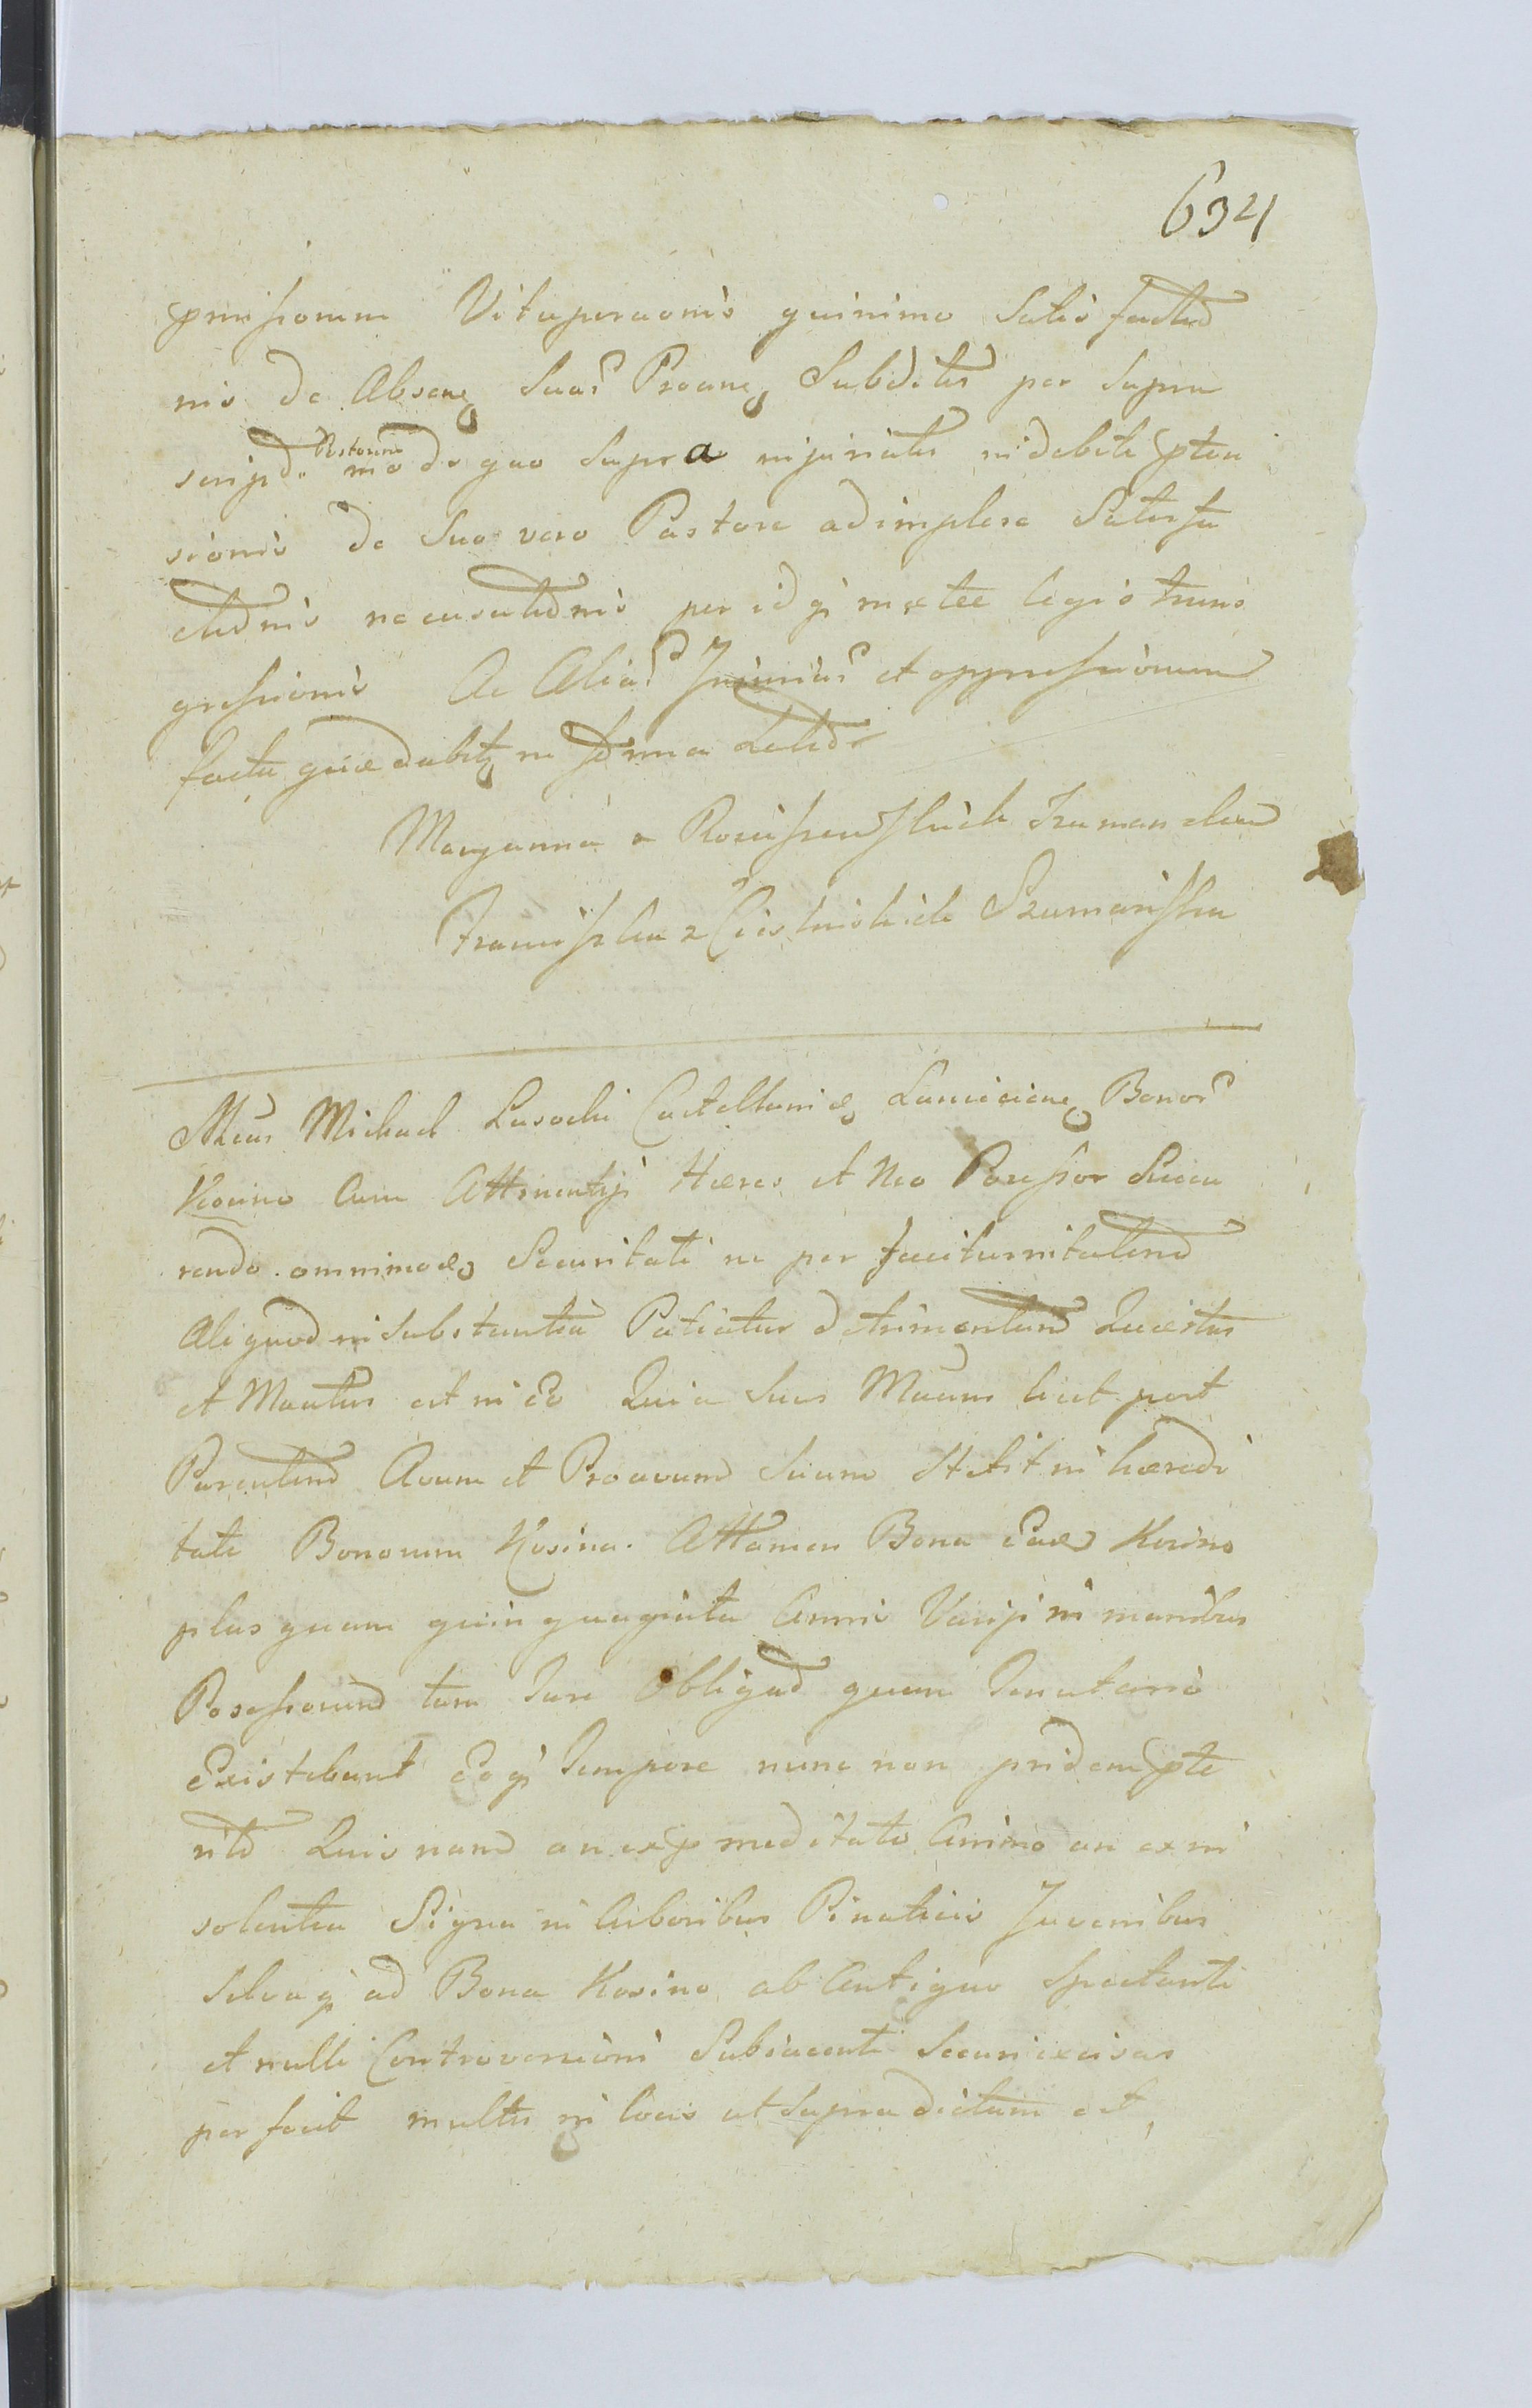 634
pmissorum Vituperaonis quinimo Satis factio
nis de Absenq Suar Proanq Subditis per Supra
scripd. Pastorem modo quo Supra injuriatis indebite pten
sionis de Suo vero Pastore adimplere Satisfa
ctionis recusationis per idq in xtte legis trans
gressionis Ac Aliar Injuriar et oppressionum
facta quae dabitq in forma Latior
Maryanna z Rosciszewskich Szumanska
Franciszka z Ciesluiskich Szumańska
Mcus Michael Lasocki Castellanidq Lancicienq Bonor
Kosino Cum Attinentijs Haeres et Neo Possessor Succu
rendo omnimodq Securitati ne per taciturnitatem
Aliquod in substantia Patiatur detrimentum Questus
et Mantus est in Eo Quia Suus Mcus licet post
Parentem Avum et Proavum Suum Stetit in haeredi
tate Bonorum Kosina. Attamen Bona Eaedq Kosino
plus quam quinquaginta Annis Varijs in manibus
Possessorum tam Jure Obligato quam Tenutario
Existebant Eoq Tempore nunc non pridem pte
rito Quisnam an ex pmeditato Animo an ex in
solentia Signa in Arboribus Pinaticis Juvenibus
Silvaq ad Bona Kosino ab Antiquo Spectanti
et nulli Controversioni Subiacenti Securi excisas
per fecit multis in locis ut Supra dictum est,